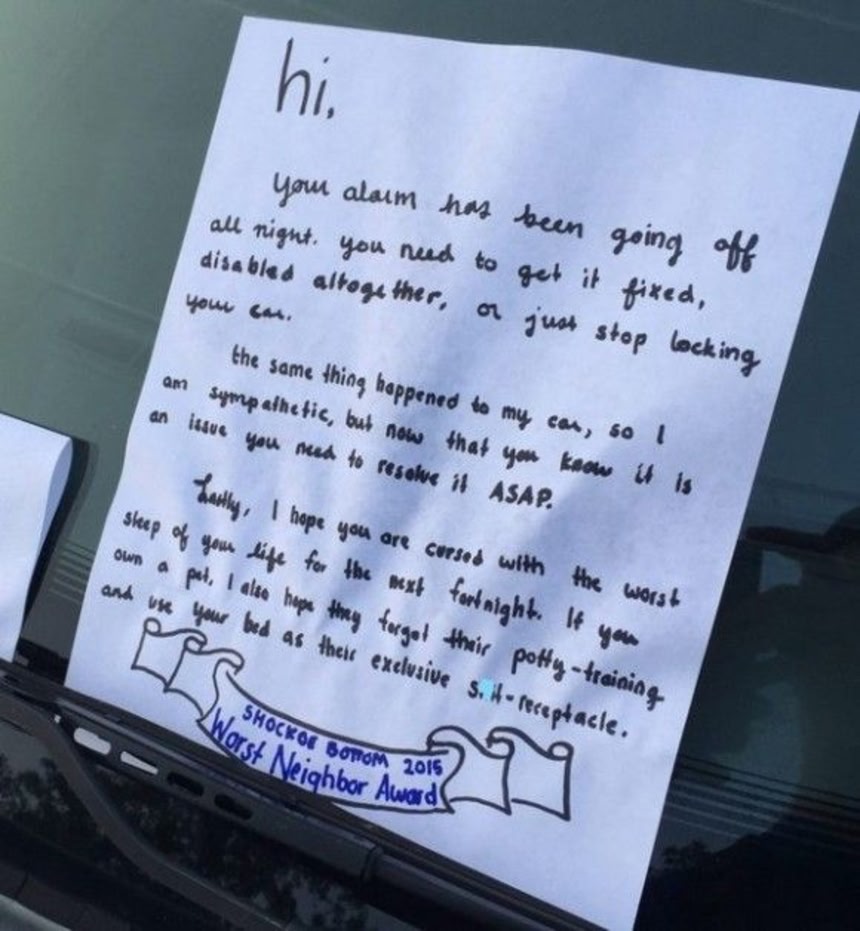 hi,
your alarm has been going off
all night. you need to get it fixed,
disabled altogether, or just stop locking
your car.
the same thing happened to my car, so I
am sympathetic, but now that you know it is
an issue you need to resolve it ASAP.
Lastly, I hope you are cursed with the worst
sleep of your life for the next fortnight. If you
own a pet, I also hope they forget their potty-training
and use your bed as their exclusive s it-receptacle.
SHOCKOE BOTTOM 2015
Worst Neighbor Award